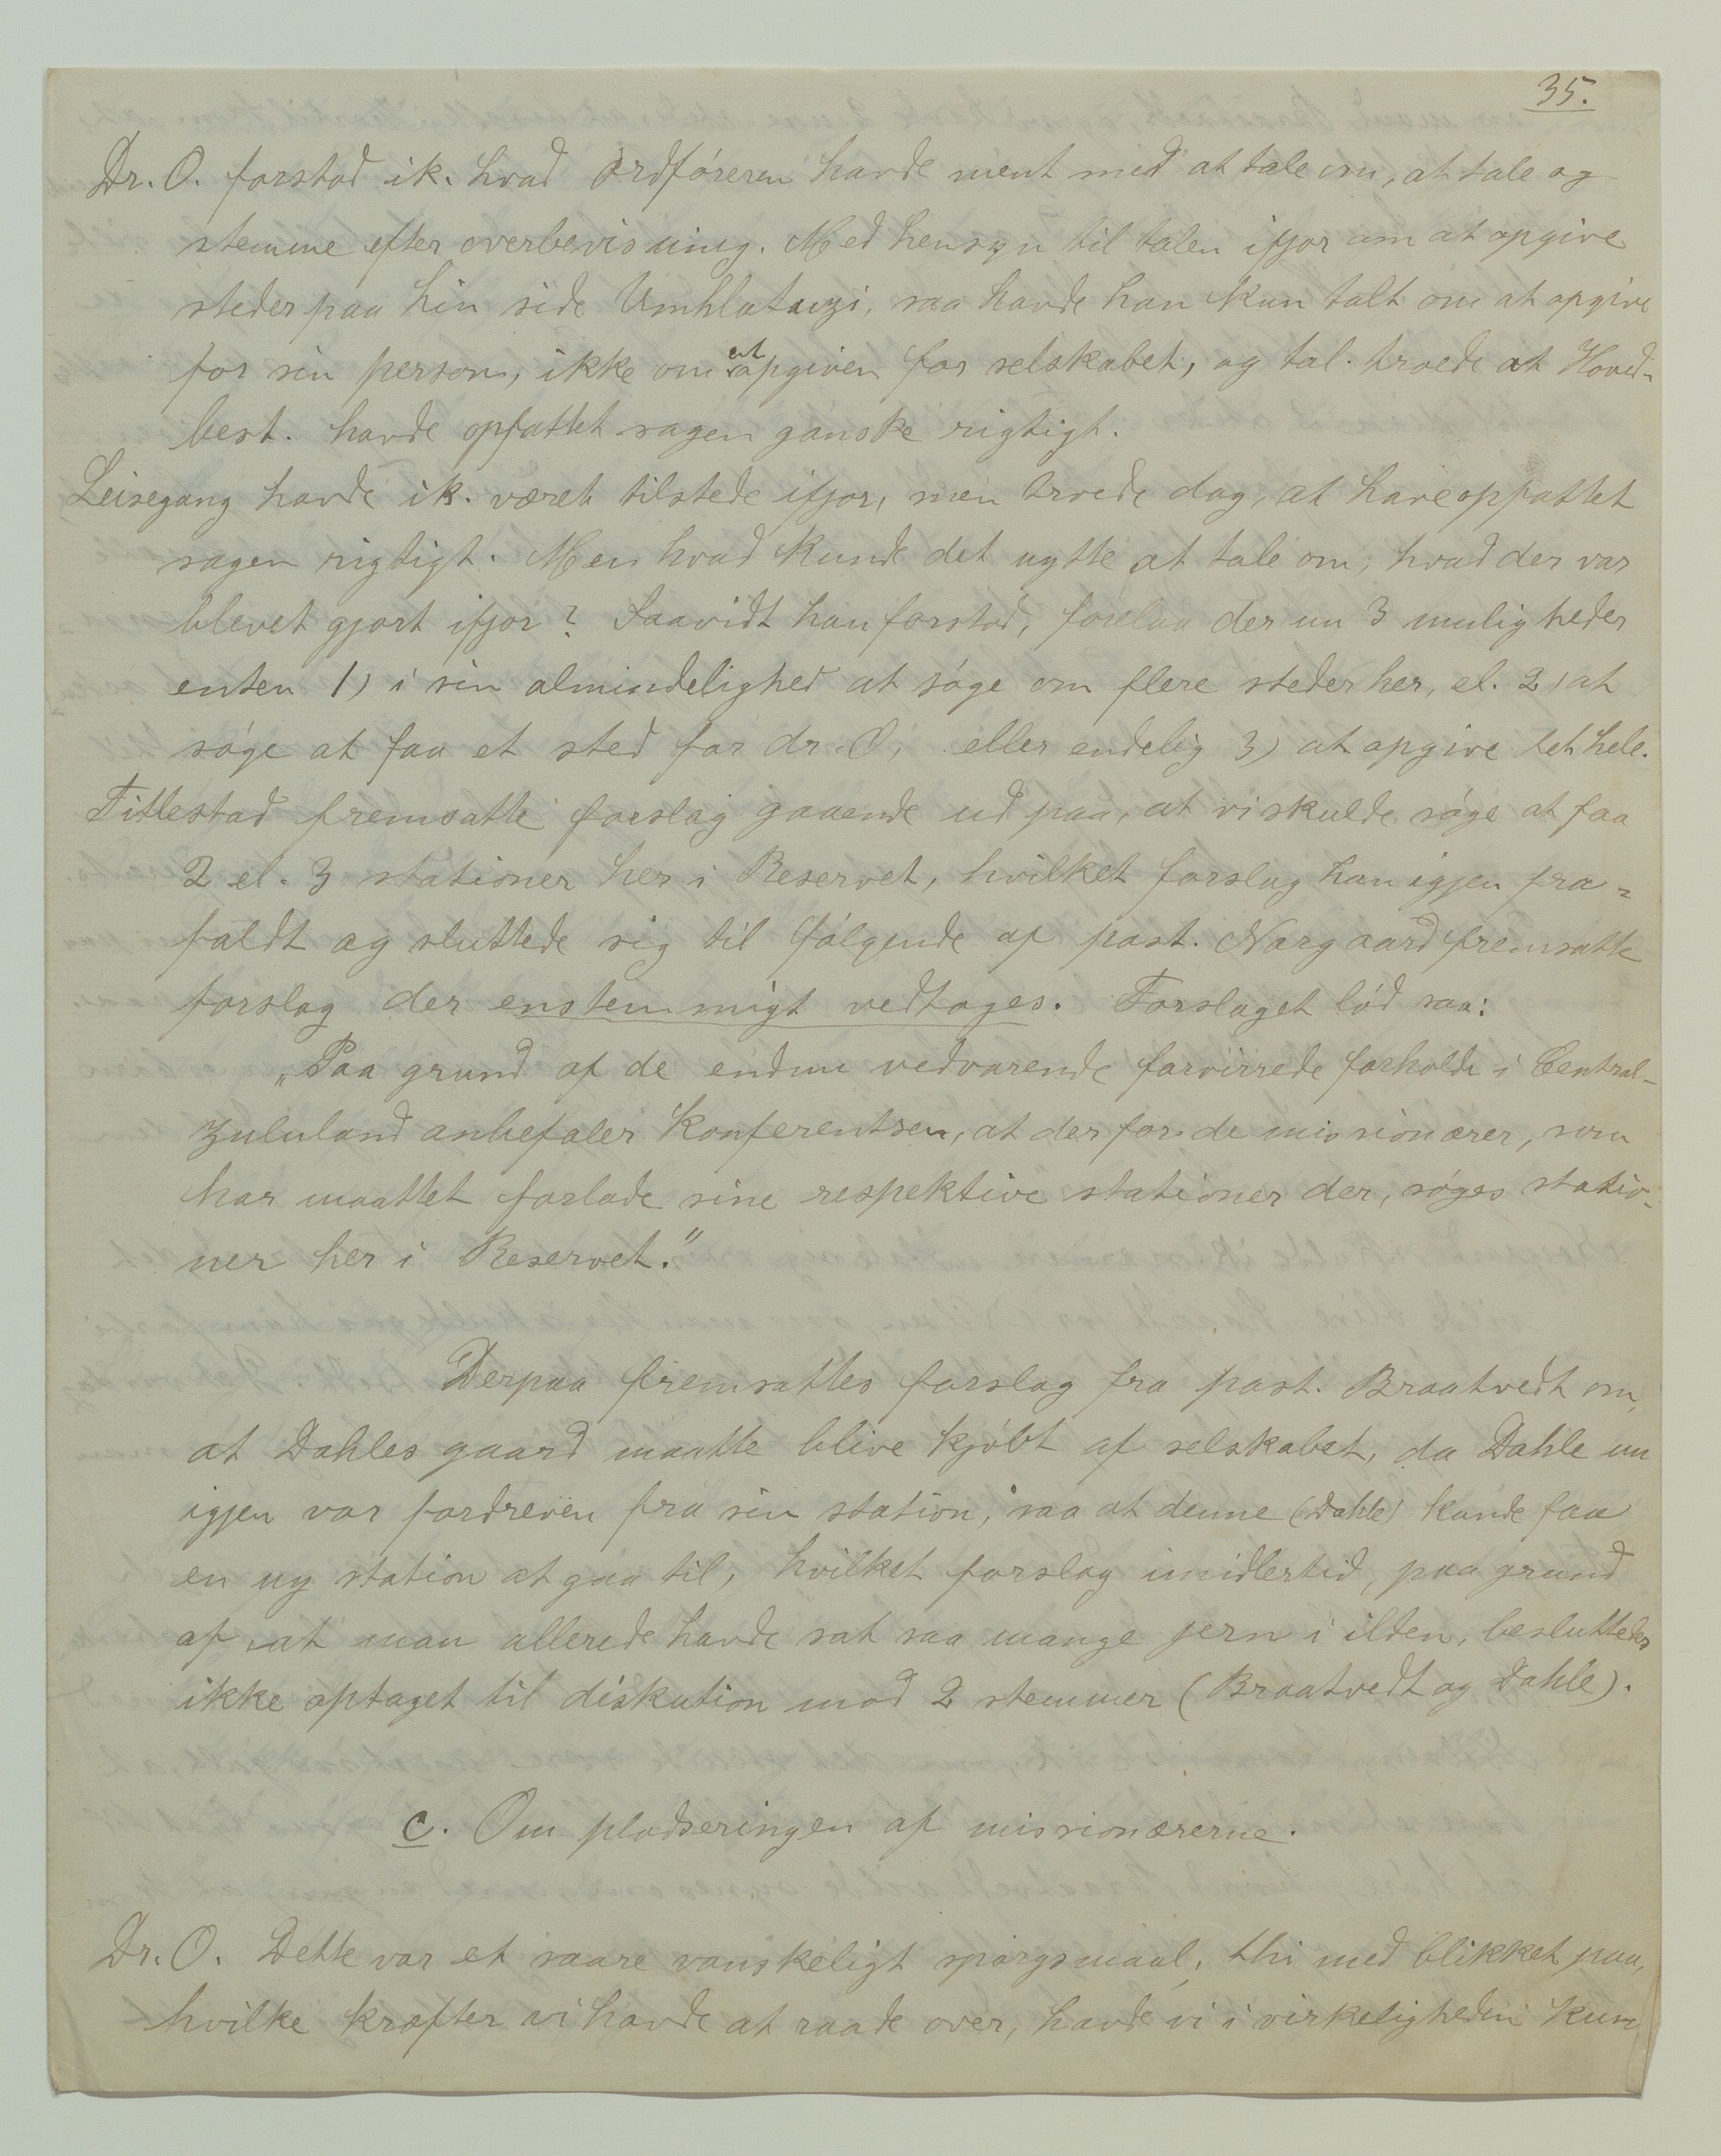 35.
Dr. O. forstod ik. hvad Ordføreren havde ment med at tale om, at tale og
stemme efter overbevisning. Med hensyn til talen ifjor om at opgive
steder paa hin side Umhlatuzi, saa havde han kun talt om at opgive
for sin person, ikke om at opgiven for selskabet, og tal. troede at Hoved-
best. havde opfattet sagen ganske rigtigt.
Leisegang havde ik. været tilstede ifjor, men troede dog, at have opfattet
sagen rigtigt. Men hvad kunde det nytte at tale om, hvad der var
blevet gjort ifjor? Saavidt han forstod, forelaa der nu 3 muligheder
enten 1) i sin almindelighed at søge om flere steder her, el. 2) at
søge at faa et sted for dr. O, eller endelig 3) at opgive det hele.
Titlestad fremsatte forslag gaaende ud paa, at vi skulde søge at faa
2 el. 3 stationer her i Reservet, hvilket forslag han igjen fra-
faldt og sluttede sig til følgende af past. Norgaard fremsatte
forslag der enstemmigt vedtoges. Forslaget lød saa:
"Paa grund af de endnu vedvarende forvirrede forholde i Central-
zululand anbefaler Konferentsen, at der for de missionærer, som
har maattet forlade sine respektive stationer der, søges statio-
ner her i Reservet."
Derpaa fremsattes forslag fra past. Braatvedt om,
at Dahles gaard maatte blive kjøbt af selskabet, da Dahle nu
igjen var fordreven fra sin station, saa at denne (Dahle) kunde faa
en ny station at gaa til, hvilket forslag imidlertid, paa grund
af, at man allerede havde sat saa mange jern i ilden, besluttedes
ikke optaget til diskution mod 2 stemmer (Braatvedt og Dahle).
c. Om pladseringen af missionærerne.
Dr. O. Dette var et saare vanskeligt spørgsmaal, thi med blikket paa,
hvilke kræfter vi havde at raade over, havde vi i virkeligheden kun